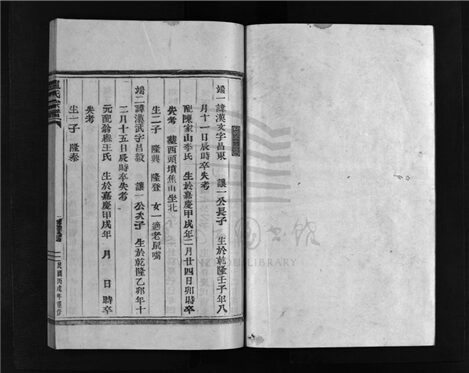 端一諱漢文字昌東 讓一公長子 生於乾隆壬子年八
月十一日辰時卒失考
配陳家山季氏 生於嘉慶甲戌年二月廿四卯時卒
失考 葬西頭墳焦山坐北
生二子 隆興 隆登 女一適老鼠嘴
端二諱漢武字昌敦 讓一公次子 生於乾隆乙卯年十
二月十五日辰時卒失考
元配翁春王氏 生於嘉慶甲戌年 月 日 時卒
失考
生一子 隆泰
氏宗譜
民國丙戌年重修
LIBRARY